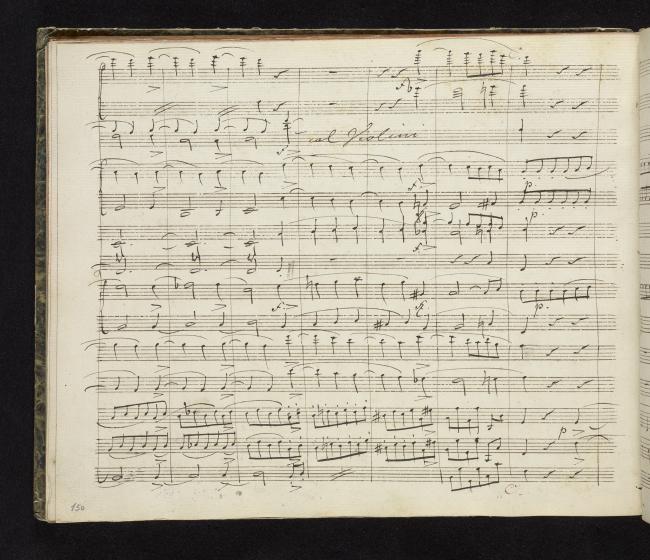 col Violini
p
p.
p.
p
150